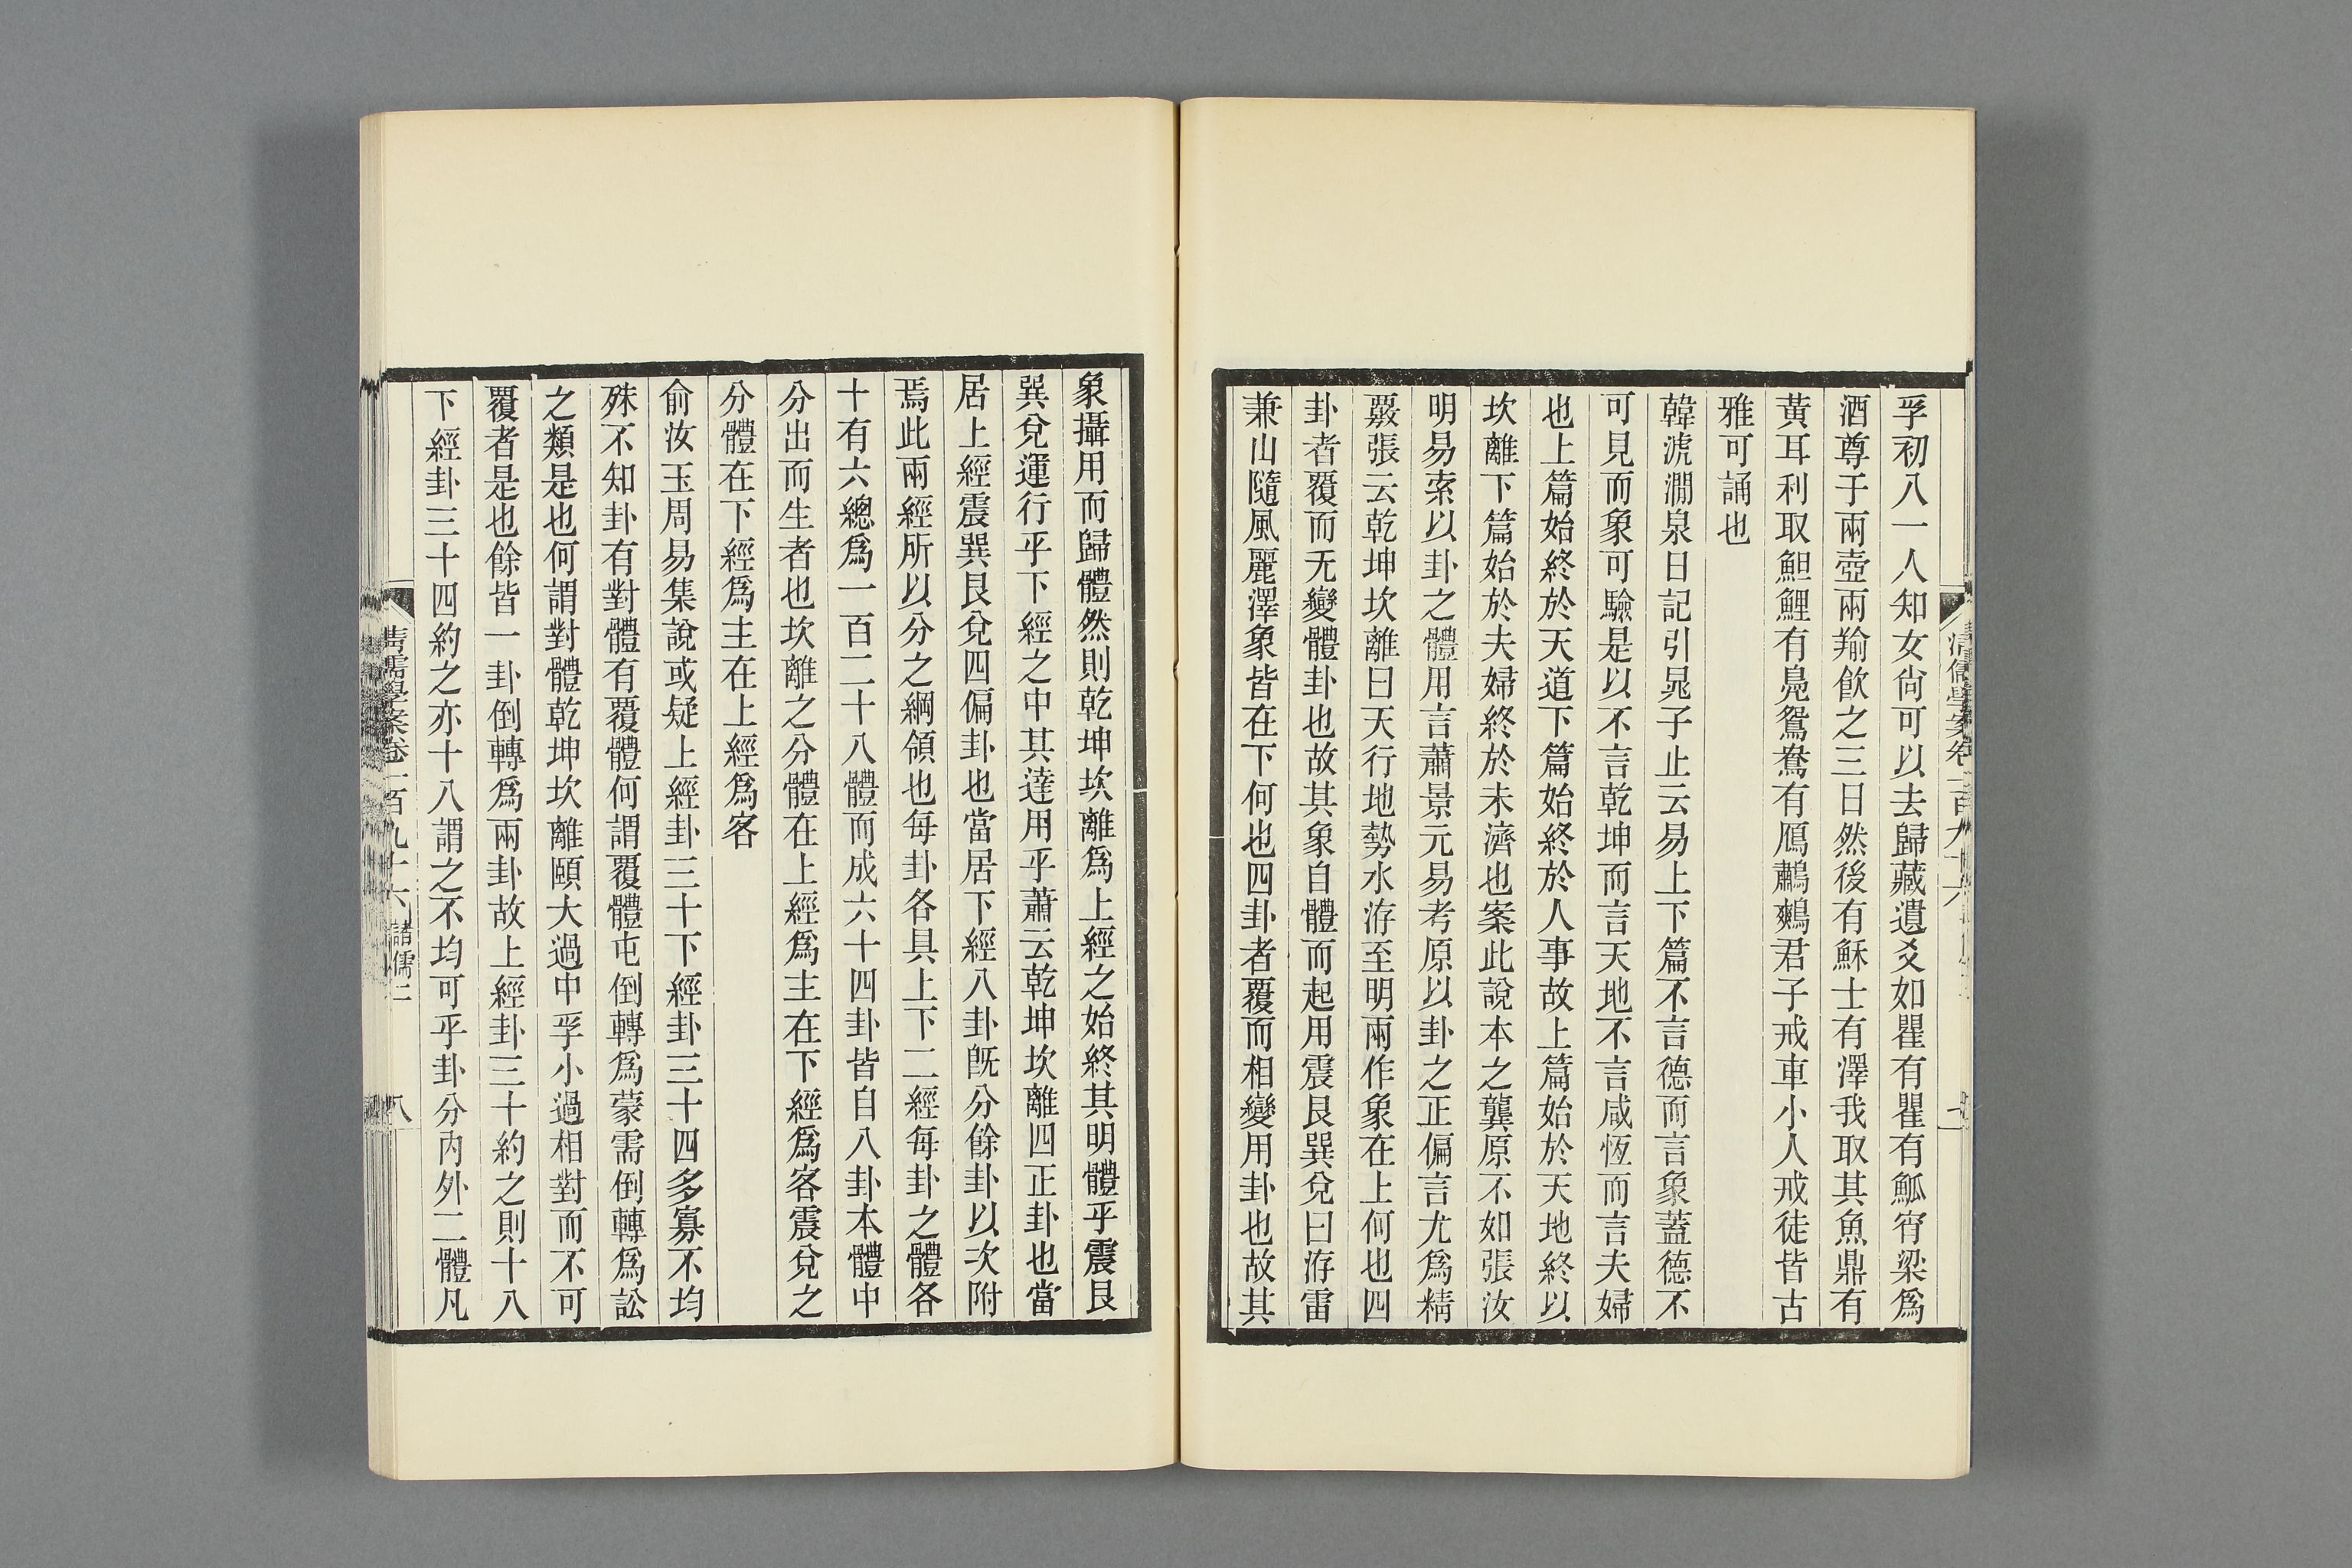 孚初八一人知女尙可以去歸藏遺爻如瞿有瞿有觚宵梁爲
酒尊于兩壺兩羭飮之三日然後有穌士有澤我取其魚鼎有
黃耳利取䱇鯉有鳧鴛鴦有鴈鷫鸘君子戒車小人戒徒皆古
雅可誦也
韓淲澗泉日記引晁子止云易上下篇不言德而言象蓋德不
可見而象可驗是以不言乾坤而言天地不言咸恆而言夫婦
也上篇始終於天道下篇始終於人事故上篇始於天地終以
坎離下篇始於夫婦終於未濟也案此說本之龔原不如張汝
明易索以卦之體用言蕭景元易考原以卦之正偏言尤爲精
覈張云乾坤坎離曰天行地勢水洊至明兩作象在上何也四
卦者覆而无變體卦也故其象自體而起用震艮巽兌曰洊雷
兼山隨風麗澤象皆在下何也四卦者覆而相變用卦也故其
象攝用而歸體然則乾坤坎離爲上經之始終其明體乎震艮
巽兌運行乎下經之中其達用乎蕭云乾坤坎離四正卦也當
居上經震巽艮兌四偏卦也當居下經八卦旣分餘卦以次附
焉此兩經所以分之綱領也每卦各具上下二經每卦之體各
十有六總爲一百二十八體而成六十四卦皆自八卦本體中
分出而生者也坎離之分體在上經爲主在下經爲客震兌之
分體在下經爲主在上經爲客
俞汝玉周易集說或疑上經卦三十下經卦三十四多寡不均
殊不知卦有對體有覆體何謂覆體屯倒轉爲蒙需倒轉爲訟
之類是也何謂對體乾坤坎離頤大過中孚小過相對而不可
覆者是也餘皆一卦倒轉爲兩卦故上經卦三十約之則十八
下經卦三十四約之亦十八謂之不均可乎卦分內外二體凡
清儒學案卷二百九十六 諸儒二 八